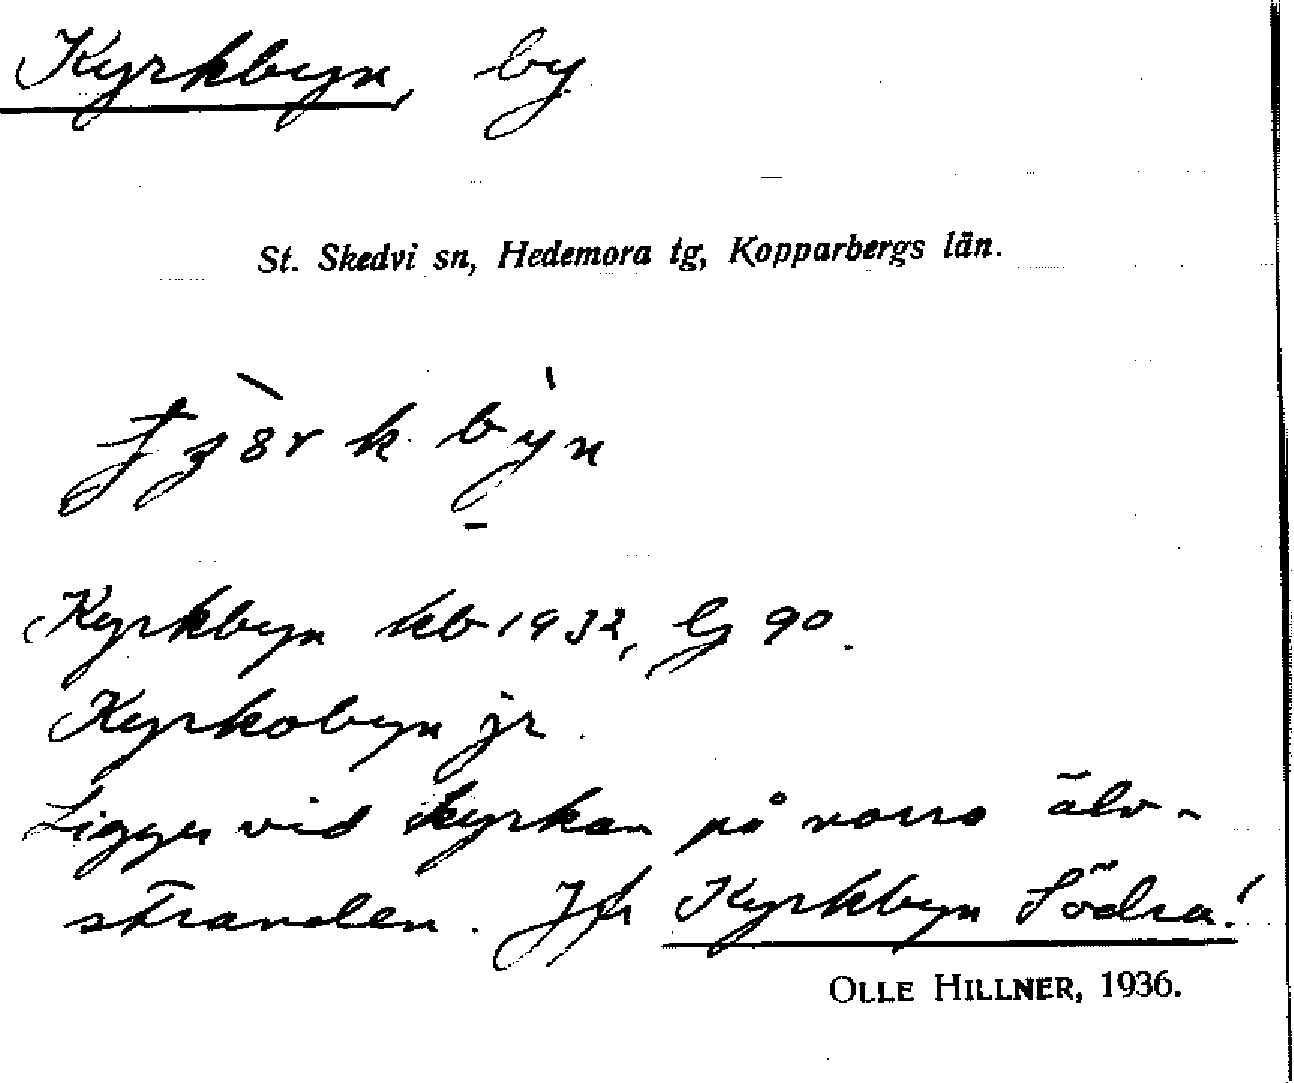 Kyrkbyn, by
St. Skedvi sn, Hedemora tg, Kopparbergs län.
Kyrkbyn kb 1932, G 90.
Kyrkobyn jr.
Ligger vid kyrkan på norra älv-
stranden. Jfr Kyrkbyn Södra!
OLLE HILLNER, 1936.